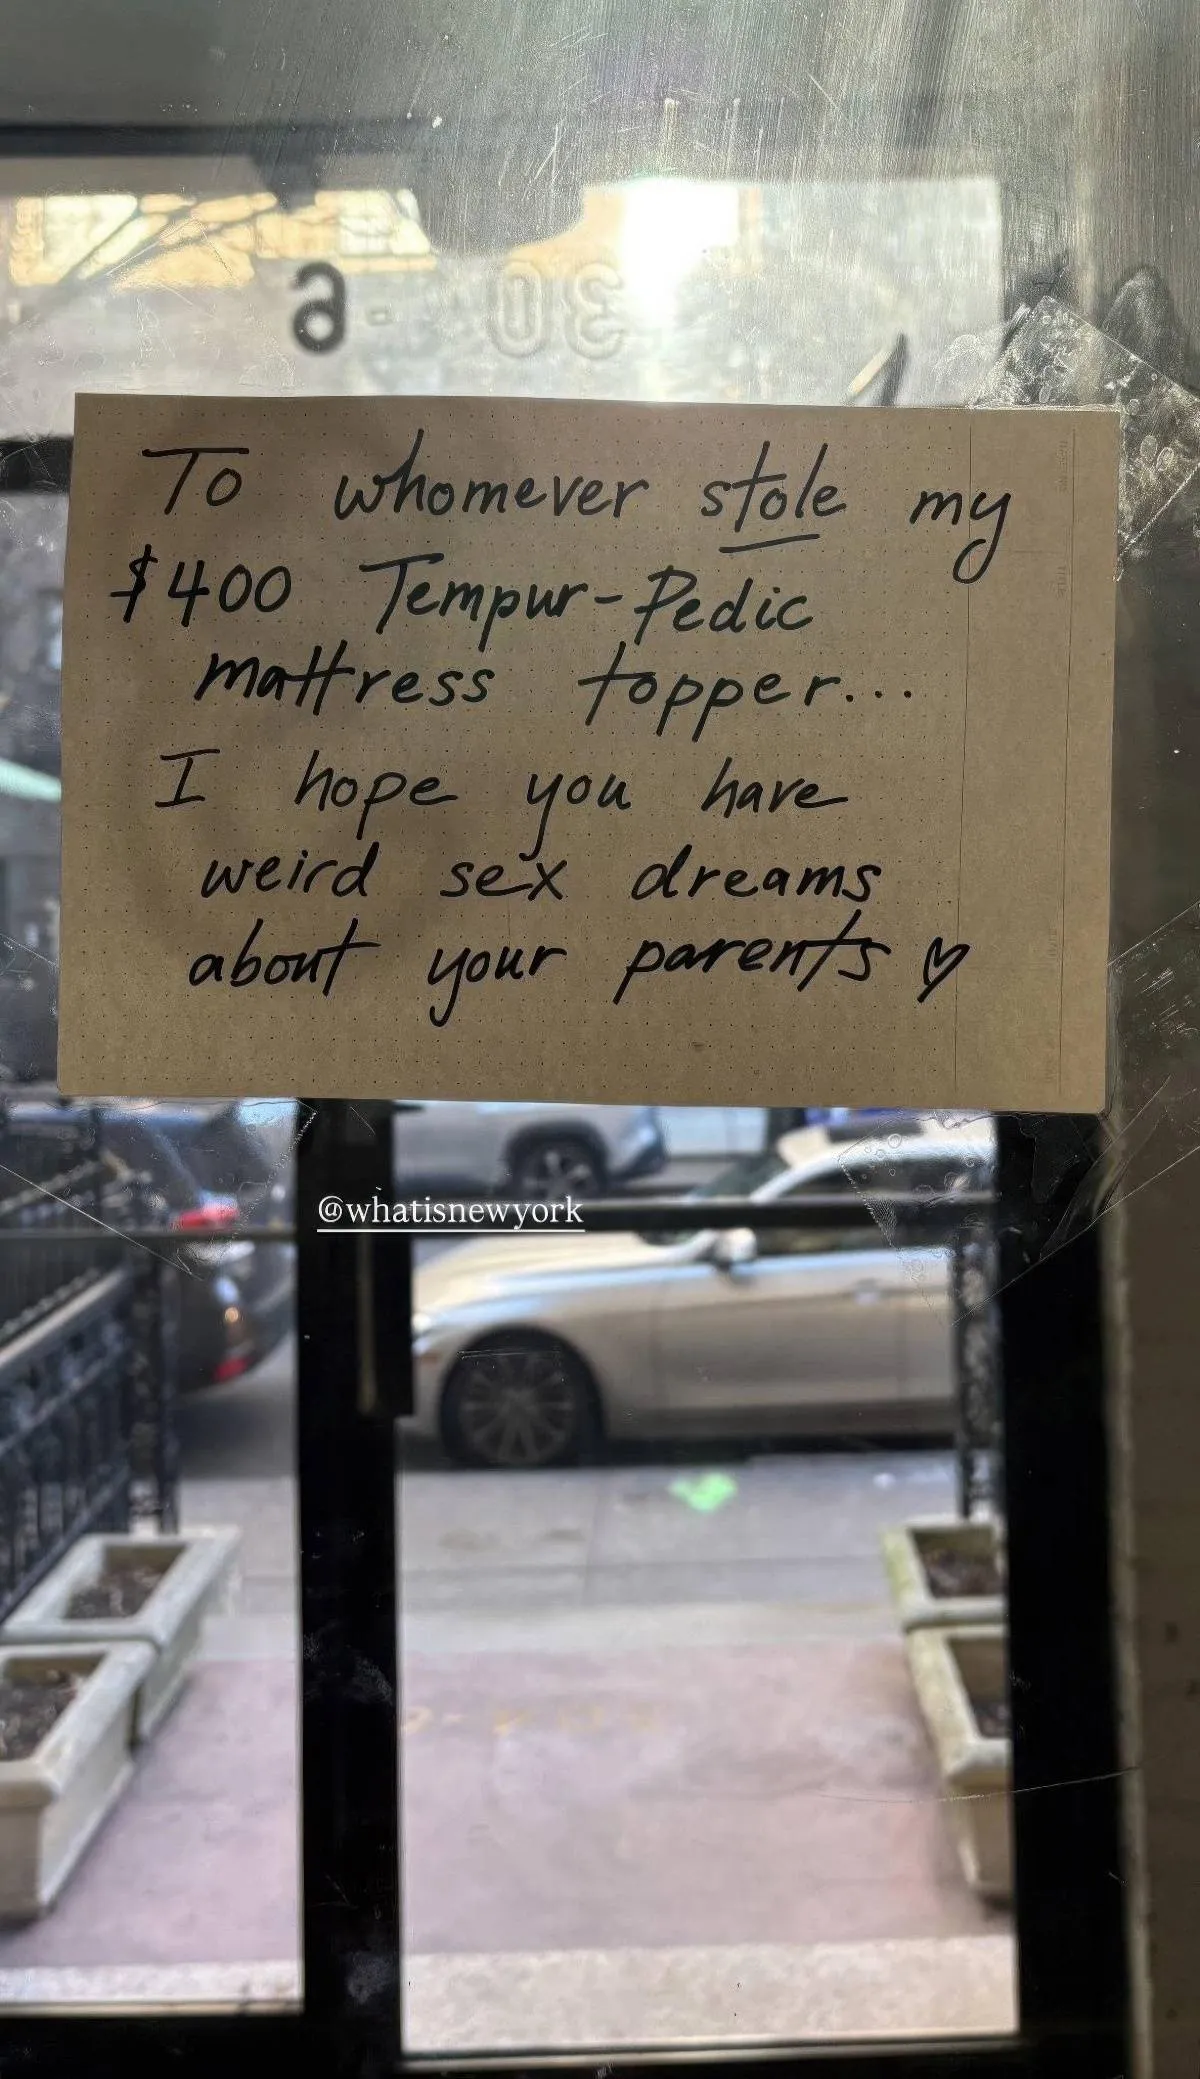 30 - 6
To whomever stole my
$400 Tempur-Pedic
mattress topper...
I hope you have
weird sex dreams
about your parents ♡
@whatisnewyork